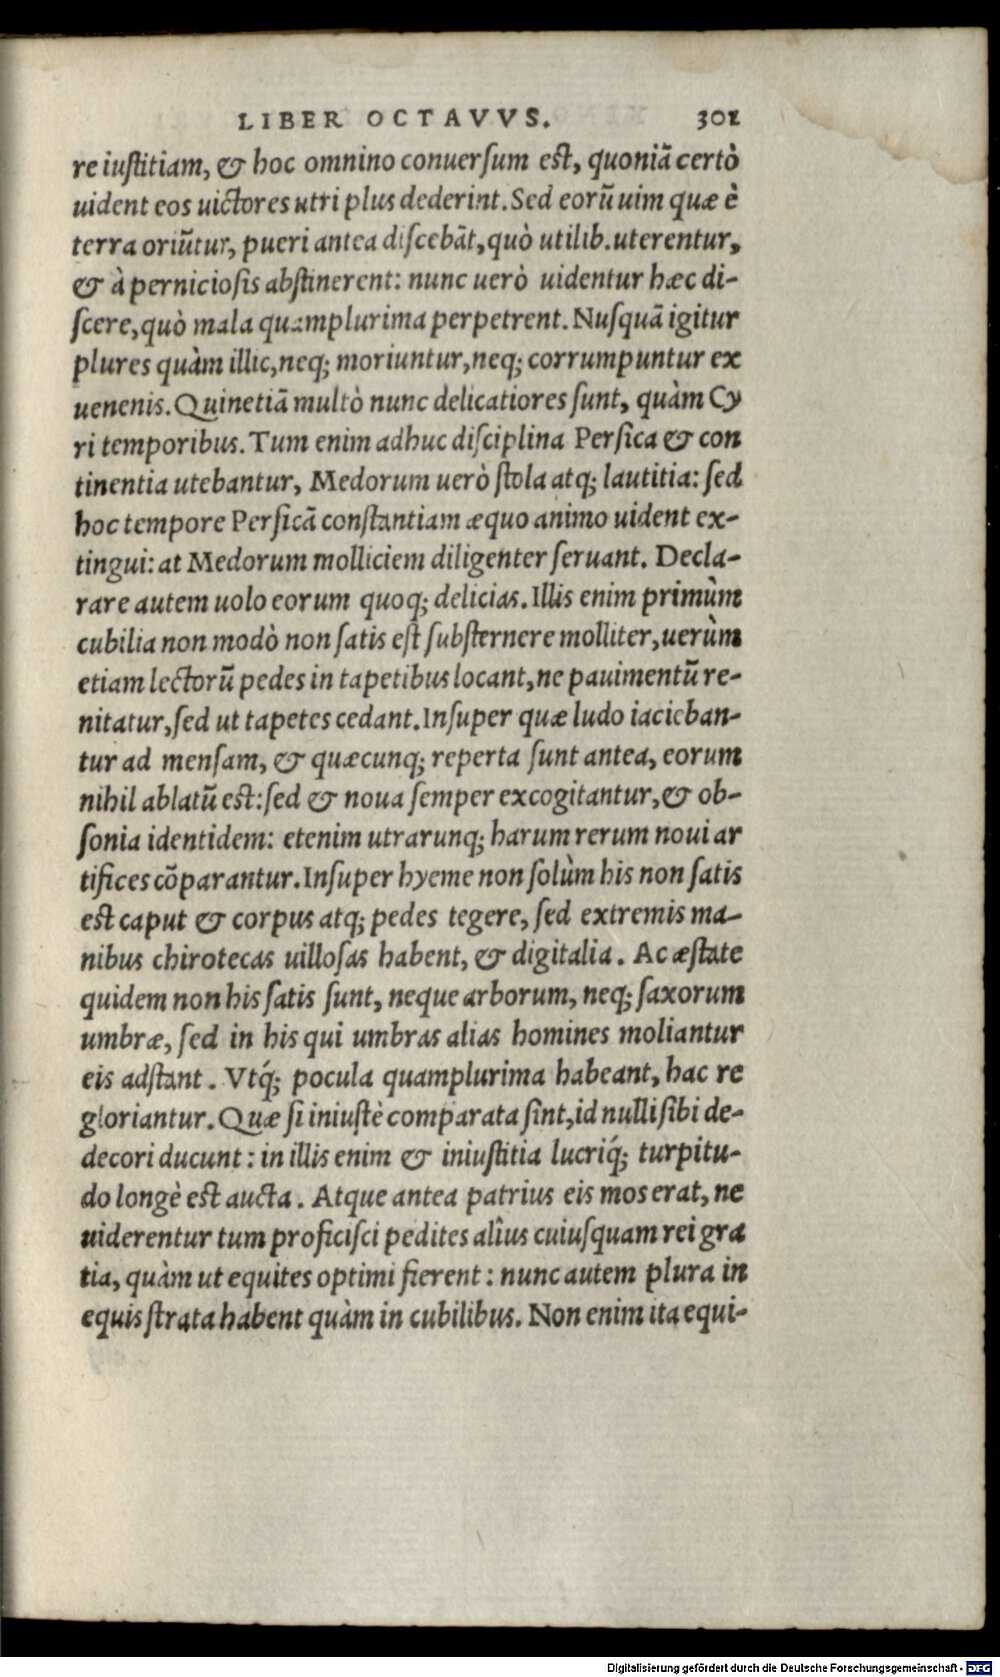 LIBER OCTAVVS. 301
re iuſtitiam, & hoc omnino conuerſum eſt, quoniā certò
uident eos uictores utri plus dederint. Sed eorū uim quæ è
terra oriūtur, pueri antea diſcebāt, quò utilib. uterentur,
& à pernicioſis abſtinerent: nunc uerò uidentur hæc di-
ſcere, quò mala quamplurima perpetrent. Nuſquā igitur
plures quàm illic, neq; moriuntur, neq; corrumpuntur ex
uenenis. Quinetiā multò nunc delicatiores ſunt, quàm Cy
ri temporibus. Tum enim adhuc diſciplina Perſica & con
tinentia utebantur, Medorum uerò ſtola atq; lautitia: ſed
hoc tempore Perſicā conſtantiam æquo animo uident ex-
tingui: at Medorum molliciem diligenter ſeruant. Decla-
rare autem uolo eorum quoq; delicias. Illis enim primùm
cubilia non modò non ſatis eſt ſubſternere molliter, uerùm
etiam lectorū pedes in tapetibus locant, ne pauimentū re-
nitatur, ſed ut tapetes cedant. Inſuper quæ ludo iacieban-
tur ad menſam, & quæcunq; reperta ſunt antea, eorum
nihil ablatū eſt: ſed & noua ſemper excogitantur, & ob-
ſonia identidem: etenim utrarunq; harum rerum noui ar
tifices cōparantur. Inſuper hyeme non ſolùm his non ſatis
eſt caput & corpus atq; pedes tegere, ſed extremis ma-
nibus chirotecas uilloſas habent, & digitalia. Ac æſtate
quidem non his ſatis ſunt, neque arborum, neq; ſaxorum
umbræ, ſed in his qui umbras alias homines moliantur
eis adſtant. Vtq́; pocula quamplurima habeant, hac re
gloriantur. Quæ ſi iniuſtè comparata ſint, id nulli ſibi de-
decori ducunt: in illis enim & iniuſtitia lucriq́; turpitu-
do longè eſt aucta. Atque antea patrius eis mos erat, ne
uiderentur tum proficiſci pedites alîus cuiuſquam rei gra
tia, quàm ut equites optimi fierent: nunc autem plura in
equis ſtrata habent quàm in cubilibus. Non enim ita equi-
Digitalisierung gefördert durch die Deutsche Forschungsgemeinschaft - DFG